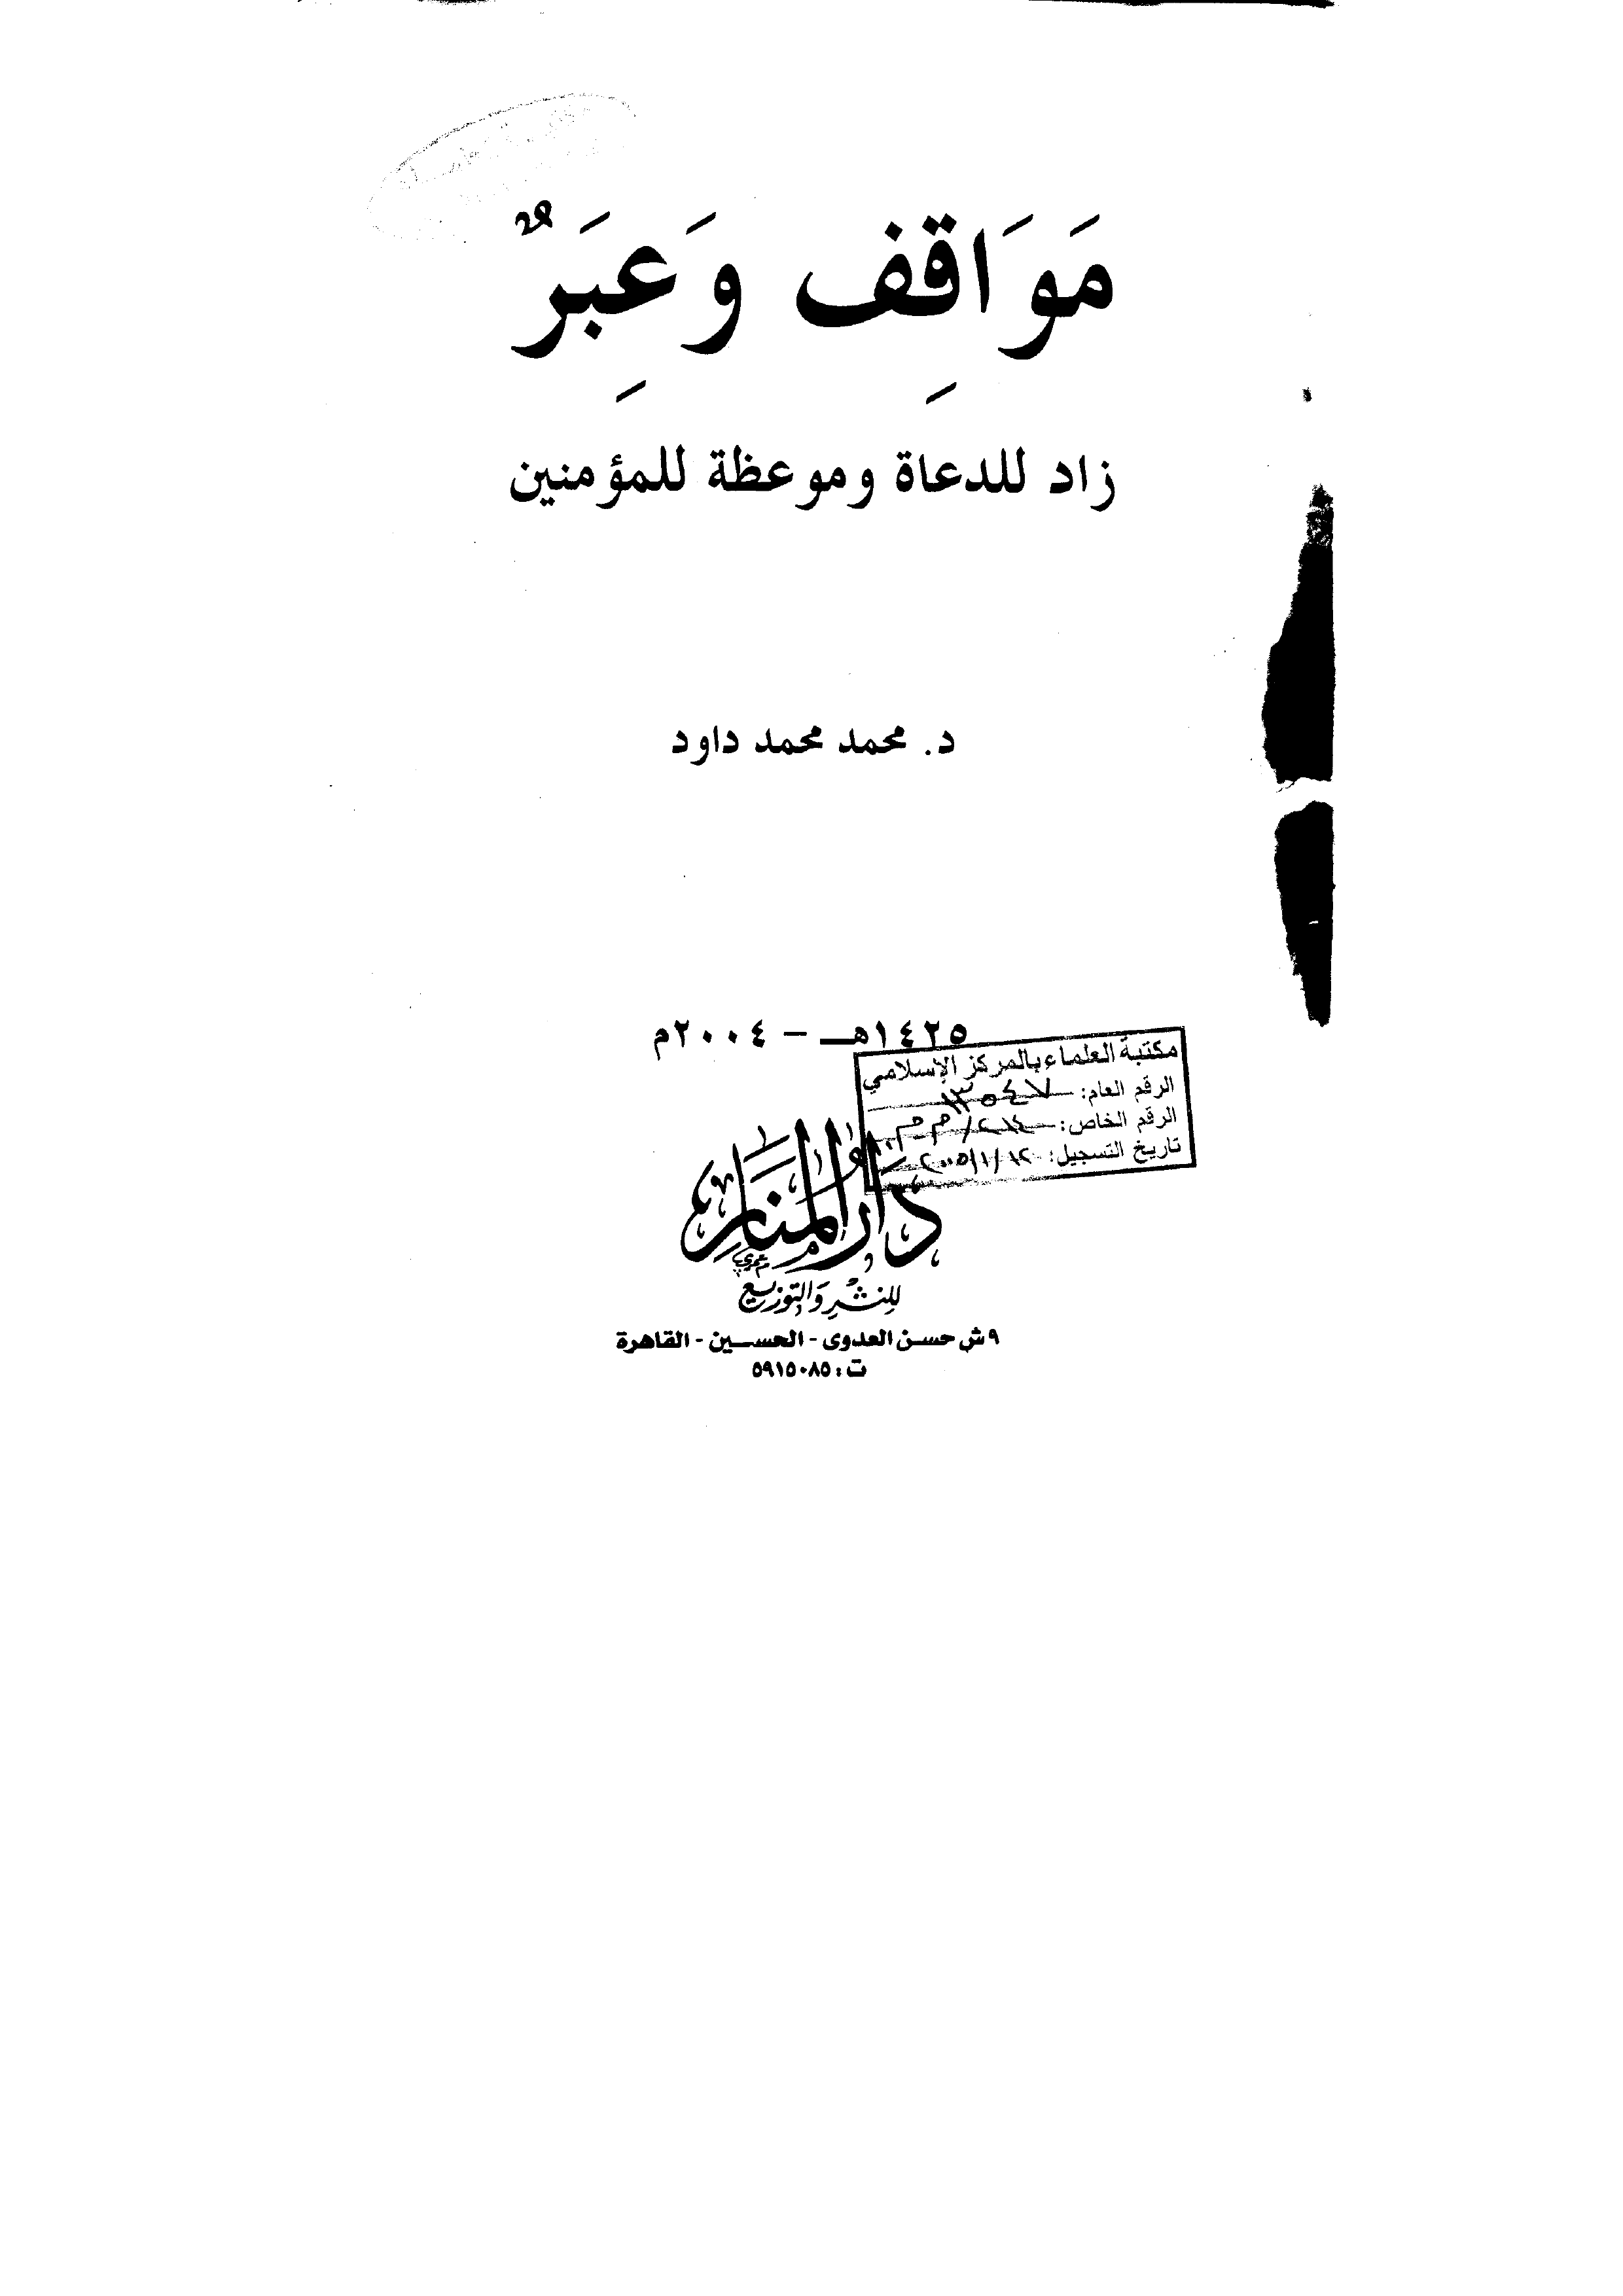 مَوَاقِف وَعِبَرٌ
زاد للدعاة وموعظة للمؤمنين
د. محمد محمد داود
١٤٢٥هـ - ٢٠٠٤م
مكتبة العلماء بالمركز الإسلامي
الرقم العام: ١٣٥٤٧
الرقم الخاص: ٢١٤/م م
تاريخ التسجيل: ١٢/١/٢٠٠٥
دار المنار
للنشر والتوزيع
٩ ش حسن العدوى - الحسين - القاهرة
ت: ٥٩١٥٠٨٥